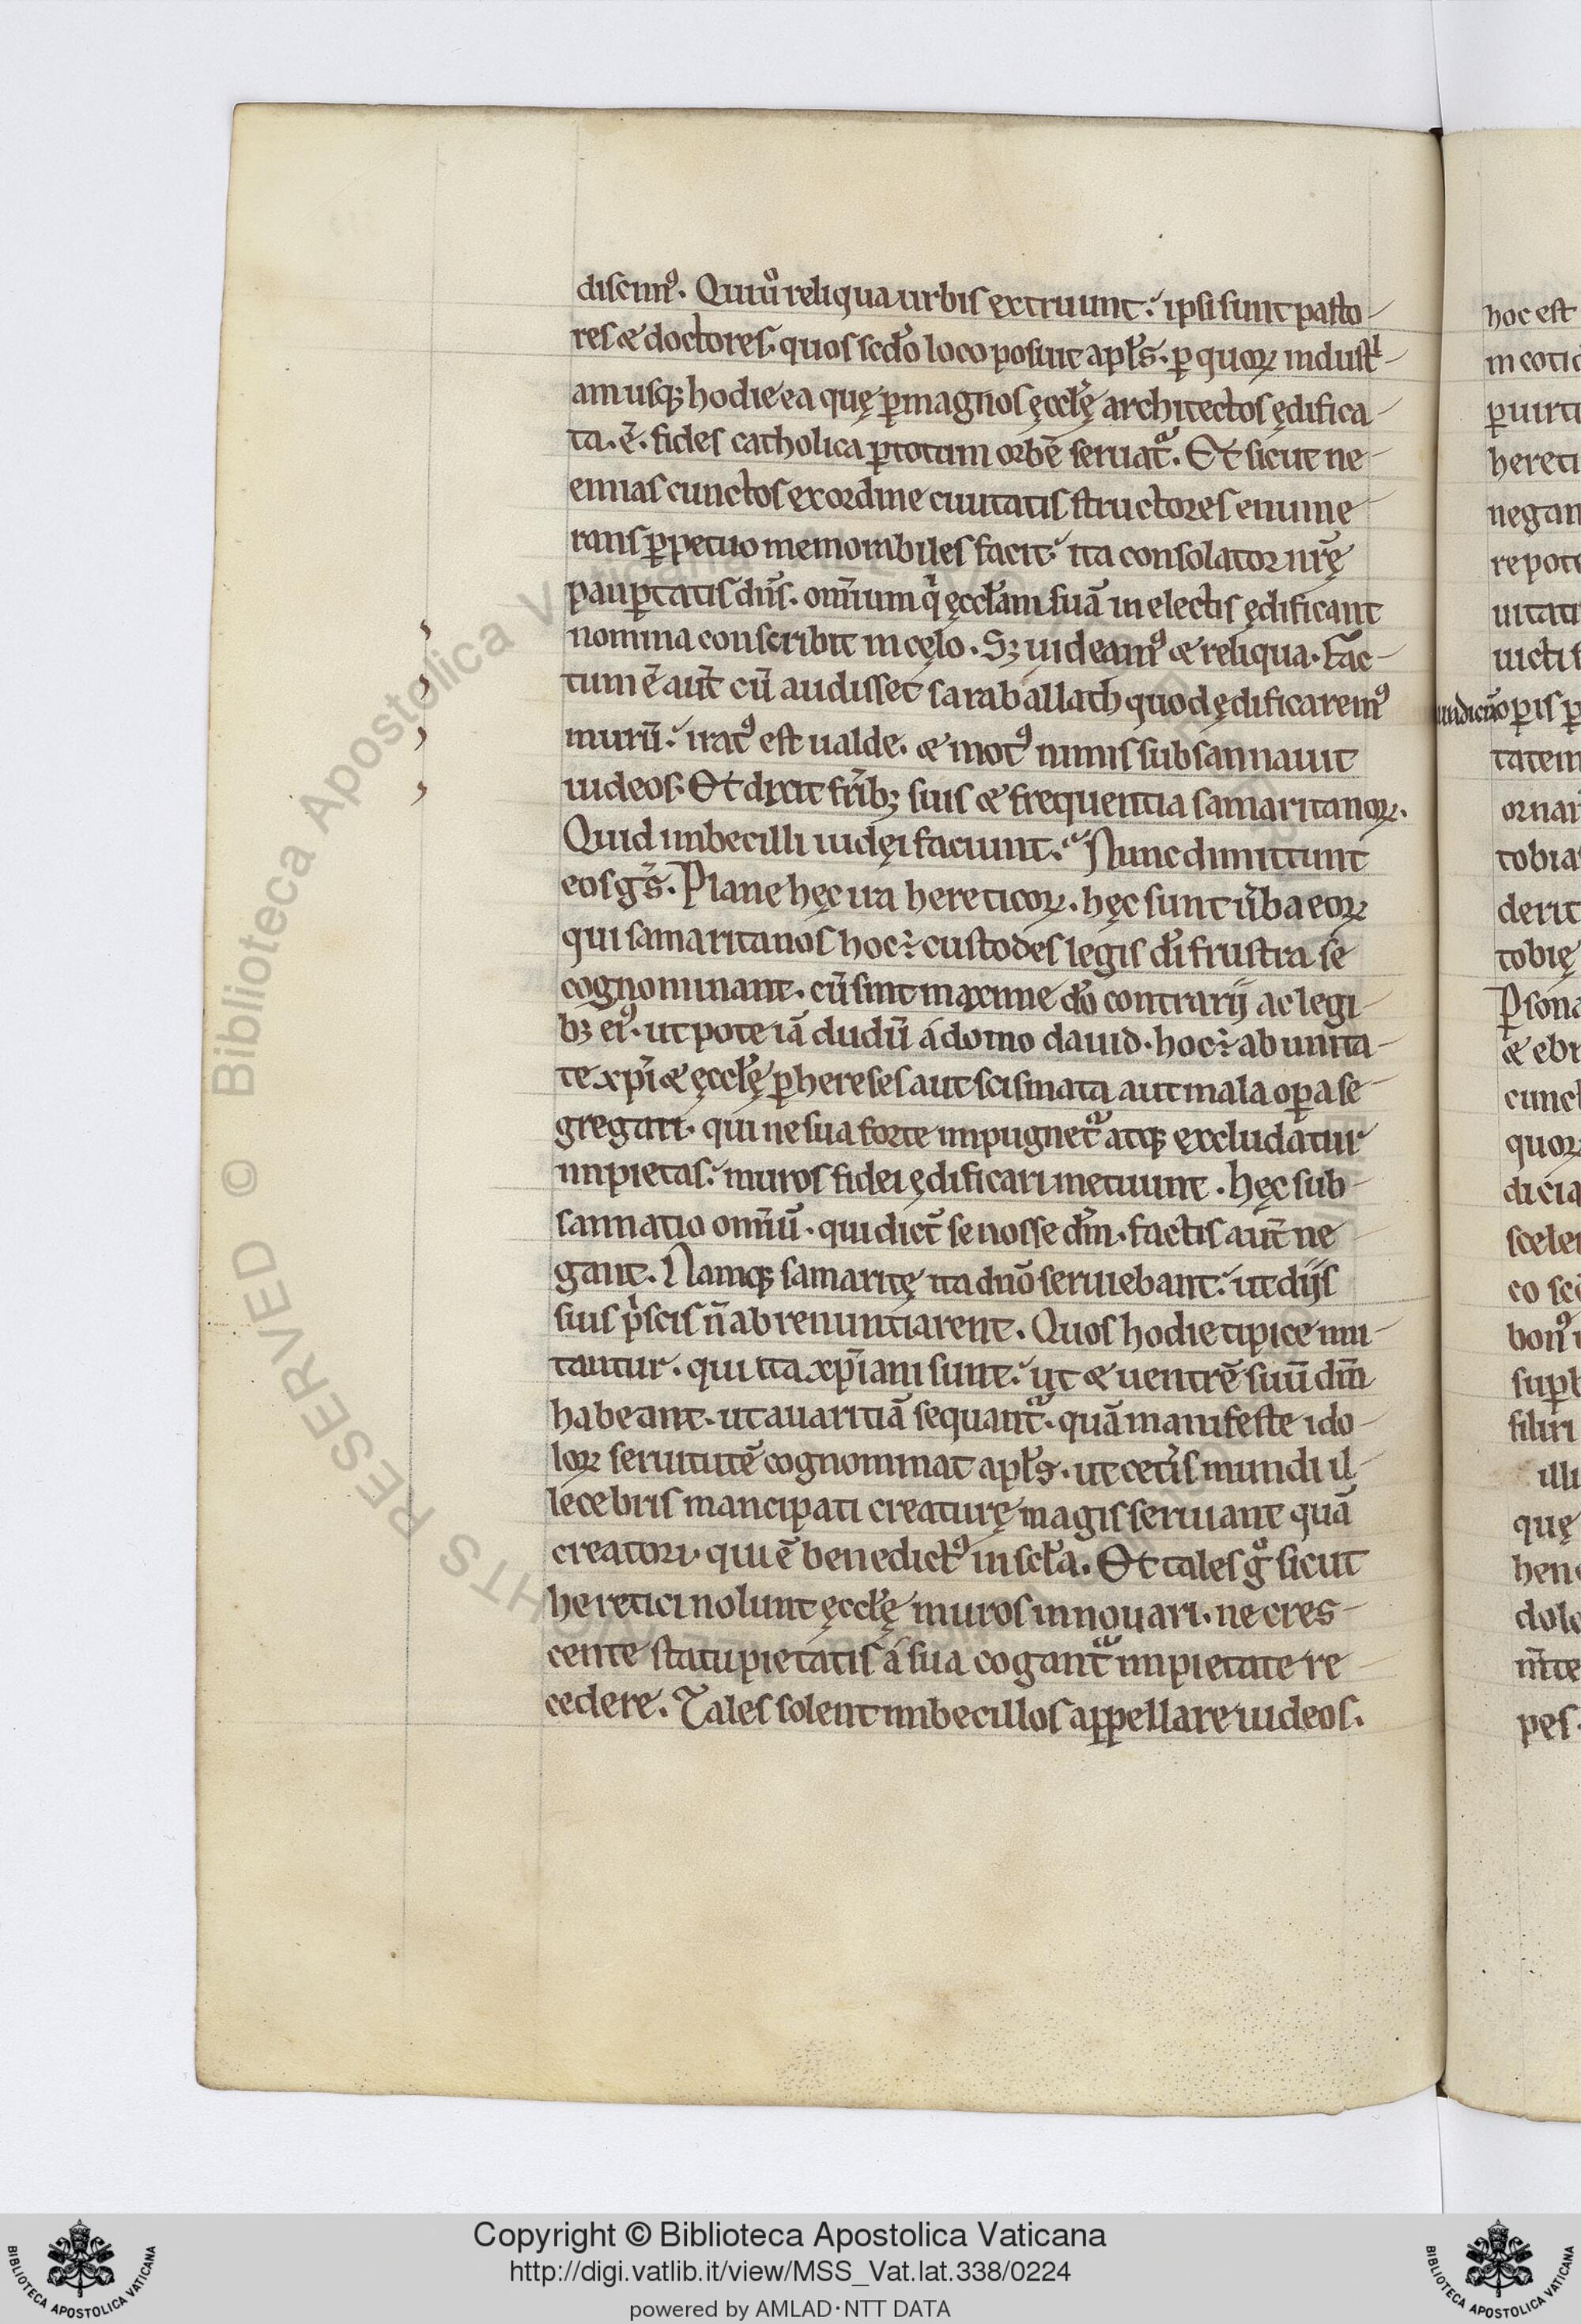 discim᷒. Qui ů reliqua urbis extruunt. ipsi sunt pasto-
res & doctores. quos scdo loco posuit apls̄. ꝑ quoꝝ industⁱ-
am usq; hodie ea quę ꝑ magnos ęccl̄ę architectos ędifica-
ta. ē. fides catholica ꝑ totum orbē seruat᷑. Et sicut ne-
emias cunctos ex ordine ciuitatis structores enume-
rans ꝑpetuo memorabiles facit. ita consolator nr̄ę
pauꝑtatis dn̄s. omīum qⁱ ęccl̄am suā in electis ędificant
nomina conscribit in cęlo. Sꝫ uideam᷒ & reliqua. Fac-
tum ē aut̄ cū audisset saraballath quod ędificarem᷒
murū. irat᷒ est ualde. & mot᷒ nimis subsannauit
iudeos. Et dixit fr̄ibꝫ suis & frequentia samaritanoꝝ.
Quid imbecilli iudęi faciunt. Nunc dimittunt
eos gs̄. Plane hęc ira hereticoꝝ. hęc sunt ūba eoꝝ
qui samaritanos hoc ÷ custodes legis dī frustra se
cognominant. cū sint maxime dō contrarij ac legi-
bꝫ ei᷒. utpote iā dudū á domo dauid. hoc ÷ ab unita-
te xp̄i & ęccl̄ę ꝑ hereses aut scismata aut mala oꝑa se-
gregati. qui ne sua forte impugnet᷑ atq; excludatur
impietas. muros fidei ędificari metuunt. Hęc sub-
sannatio omīū. qui dict̄ se nosse dm̄. factis aut̄ ne-
gant. Namq; samaritę ita dnō seruiebant. ut dijs
suis pⁱscis n̄ abrenuntiarent. Quos hodie tipice imi-
tantur. qui ita xp̄iani sunt. ut & uentrē suū dm̄
habeant. ut auaritiā sequant᷑. quā manifeste ido-
loꝝ seruitutē cognominat apls̄. ut cetⁱs mundi il-
lecebris mancipati creaturę magis seruiant quā
creatori. qui ē benedict᷒ in scl̄a. Et tales gͦ sicut
heretici nolunt ęccl̄ę muros innouari. ne cres-
cente statu pietatis á sua cogant᷑ impietate re-
cedere. Tales solent imbecillos appellare iudeos.
hoc est
in cotid
ꝑ uirt
hereti
negan
repote
uitati
uicti
opis
tatem
ornar
tobia
derit
tobię
Psona
& ebr
cunct
quoꝝ
dicia
sceler
co scd
bon᷒
supb
filiri
illi
quę
hen
dolo
pes.
© Biblioteca Apostolica Vaticana
RIGHTS RESERVED
Copyright © Biblioteca Apostolica Vaticana
http://digi.vatlib.it/view/MSS_Vat.lat.338/0224
powered by AMLAD·NTT DATA
BIBLIOTECA APOSTOLICA VATICANA
BIBLIOTECA APOSTOLICA VATICANA